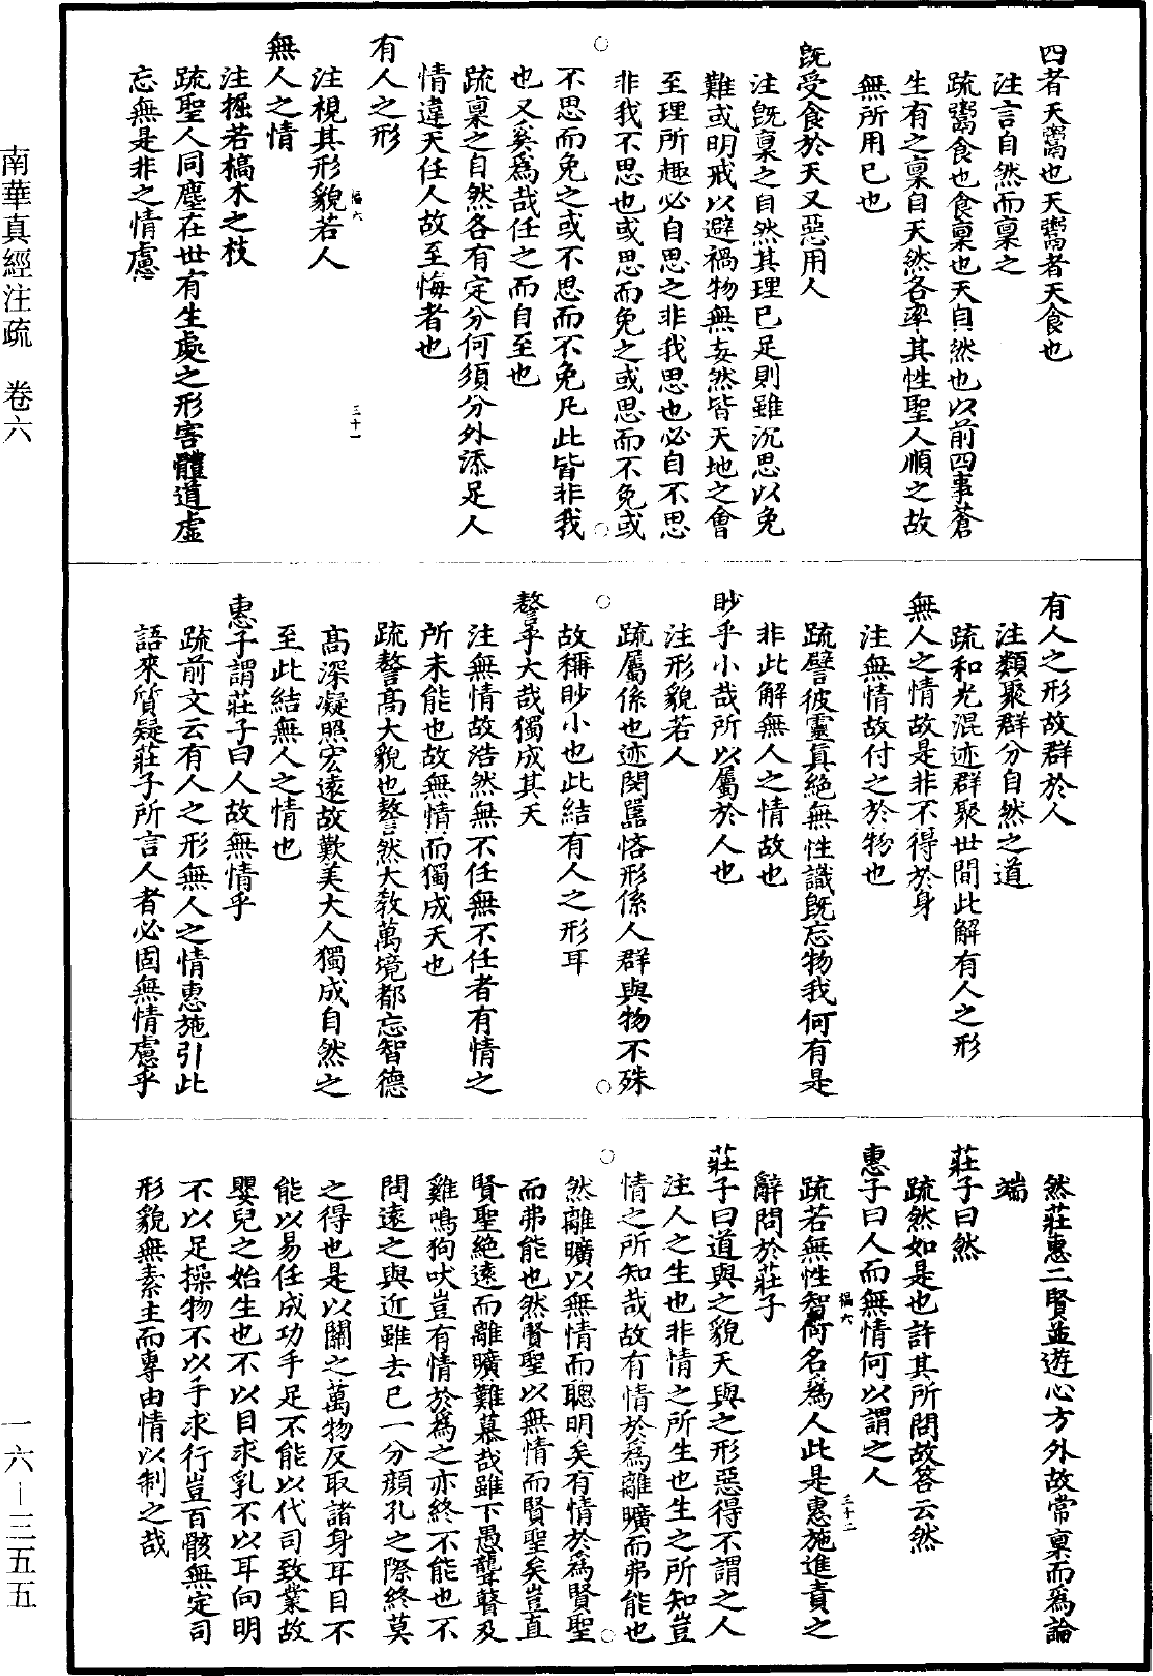 四者天鬻也天鬻者天食也
注言自然而稟之
疏鬻食也食稟也天自然也以前四事蒼
生有之稟自天然各率其性聖人順之故
無所用已也
既受食於天又惡用人
注既稟之自然其理已足則雖沉思以免
難或明戒以避禍物無妄然皆天地之會
至理所趣必自思之非我思也必自不思
非我不思也或思而免之或思而不免或
不思而免之或不思而不免凡此皆非我
也又奚為哉任之而自至也
疏稟之自然各有定分何須分外添足人
情違天任人故至悔者也
有人之形
注視其形貌若人
無人之情
注掘若槁木之枝
疏聖人同塵在世有生處之形害體道虛
忘無是非之情慮
有人之形故群於人
注類聚群分自然之道
疏和光混迹群聚世間此解有人之形
無人之情故是非不得於身
注無情故付之於物也
疏譬彼靈真絕無性識既忘物我何有是
非此解無人之情故也
眇乎小哉所以屬於人也
注形貌若人
疏屬係也迹閔囂悋形係人群與物不殊
故稱眇小也此結有人之形耳
謷乎大哉獨成其天
注無情故浩然無不任無不任者有情之
所未能也故無情而獨成天也
疏謷高大貌也謷然大教萬境都忘智德
高深凝照宏遠故歎美大人獨成自然之
至此結無人之情也
惠子謂莊子曰人故無情乎
疏前文云有人之形無人之情惠施引此
語來質疑莊子所言人者必固無情慮乎
然莊惠二賢並遊心方外故常稟而為論
端
莊子曰然
疏然如是也許其所問故答云然
惠子曰人而無情何以謂之人
疏若無性智何名為人此是惠施進責之
辭問於莊子
莊子曰道與之貌天與之形惡得不謂之人
注人之生也非情之所生也生之所知豈
情之所知哉故有情於為離曠而弗能也
然離曠以無情而聰明矣有情於為賢聖
而弗能也然賢聖以無情而賢聖矣豈直
賢聖絕遠而離曠難慕哉雖下愚聾瞽及
雞鳴狗吠豈有情於為之亦終不能也不
問遠之與近雖去已一分顏孔之際終莫
之得也是以關之萬物反取諸身耳目不
能以易任成功手足不能以代司致業故
嬰兒之始生也不以目求乳不以耳向明
不以足操物不以手求行豈百骸無定司
形貌無素主而專由情以制之哉
南華真經注疏 卷六
一六—三五五